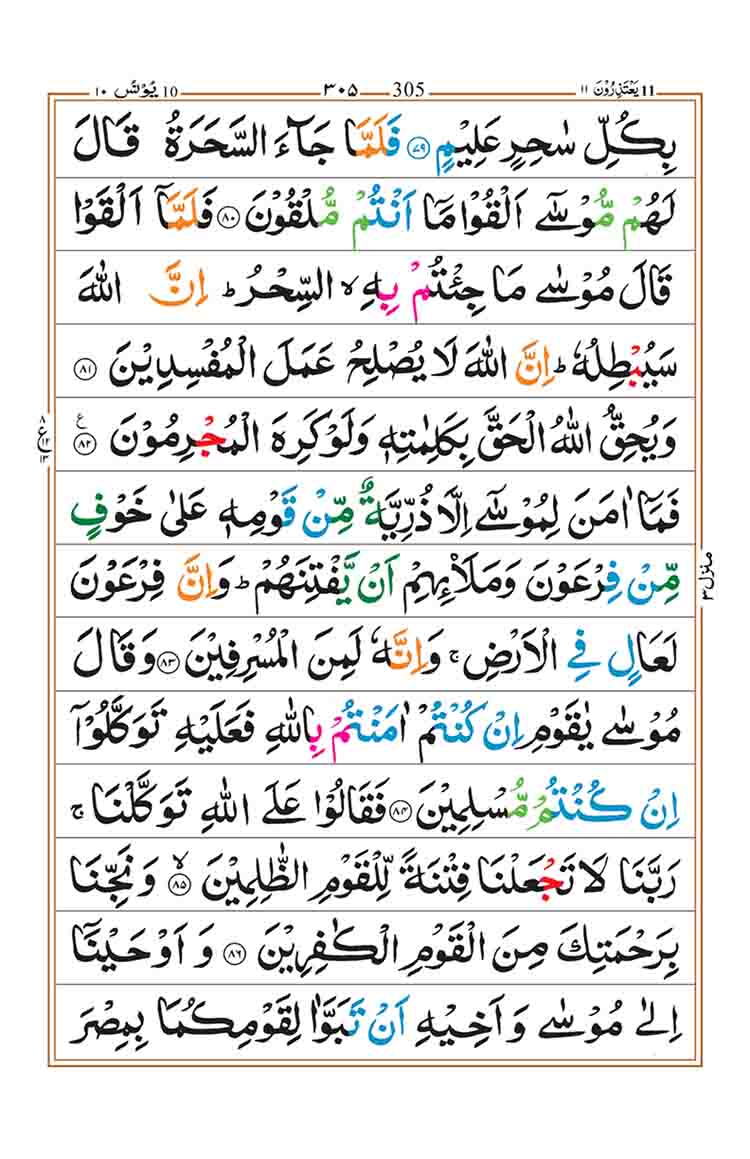 یَعْتَذِرُوْنَ ۱۱ 11 305 ۳۰۵ 10 یُوْنُس ۱۰
بِكُلِّ سٰحِرٍ عَلِیْمٍ ﴿۷۹﴾ فَلَمَّا جَآءَ السَّحَرَةُ قَالَ
لَهُمْ مُّوْسٰۤی اَلْقُوْا مَاۤ اَنْتُمْ مُّلْقُوْنَ ﴿۸۰﴾ فَلَمَّاۤ اَلْقَوْا
قَالَ مُوْسٰی مَا جِئْتُمْ بِهِ ۙ السِّحْرُ ؕ اِنَّ اللّٰهَ
سَیُبْطِلُهٗ ؕ اِنَّ اللّٰهَ لَا یُصْلِحُ عَمَلَ الْمُفْسِدِیْنَ ﴿۸۱﴾
وَیُحِقُّ اللّٰهُ الْحَقَّ بِكَلِمٰتِهٖ وَلَوْ كَرِهَ الْمُجْرِمُوْنَ ﴿۸۲﴾ ع
۸ ع ۱۲ ۱۳
فَمَاۤ اٰمَنَ لِمُوْسٰۤی اِلَّا ذُرِّیَّةٌ مِّنْ قَوْمِهٖ عَلٰی خَوْفٍ
مِّنْ فِرْعَوْنَ وَمَلَا۠ئِهِمْ اَنْ یَّفْتِنَهُمْ ؕ وَاِنَّ فِرْعَوْنَ
منزل ۳
لَعَالٍ فِی الْاَرْضِ ۚ وَاِنَّهٗ لَمِنَ الْمُسْرِفِیْنَ ﴿۸۳﴾ وَقَالَ
مُوْسٰی یٰقَوْمِ اِنْ كُنْتُمْ اٰمَنْتُمْ بِاللّٰهِ فَعَلَیْهِ تَوَكَّلُوْۤا
اِنْ كُنْتُمْ مُّسْلِمِیْنَ ﴿۸۴﴾ فَقَالُوْا عَلَی اللّٰهِ تَوَكَّلْنَا ۚ
رَبَّنَا لَا تَجْعَلْنَا فِتْنَةً لِّلْقَوْمِ الظّٰلِمِیْنَ ﴿۸۵﴾ ۙ وَنَجِّنَا
بِرَحْمَتِكَ مِنَ الْقَوْمِ الْكٰفِرِیْنَ ﴿۸۶﴾ وَ اَوْحَیْنَاۤ
اِلٰی مُوْسٰی وَ اَخِیْهِ اَنْ تَبَوَّاٰ لِقَوْمِكُمَا بِمِصْرَ